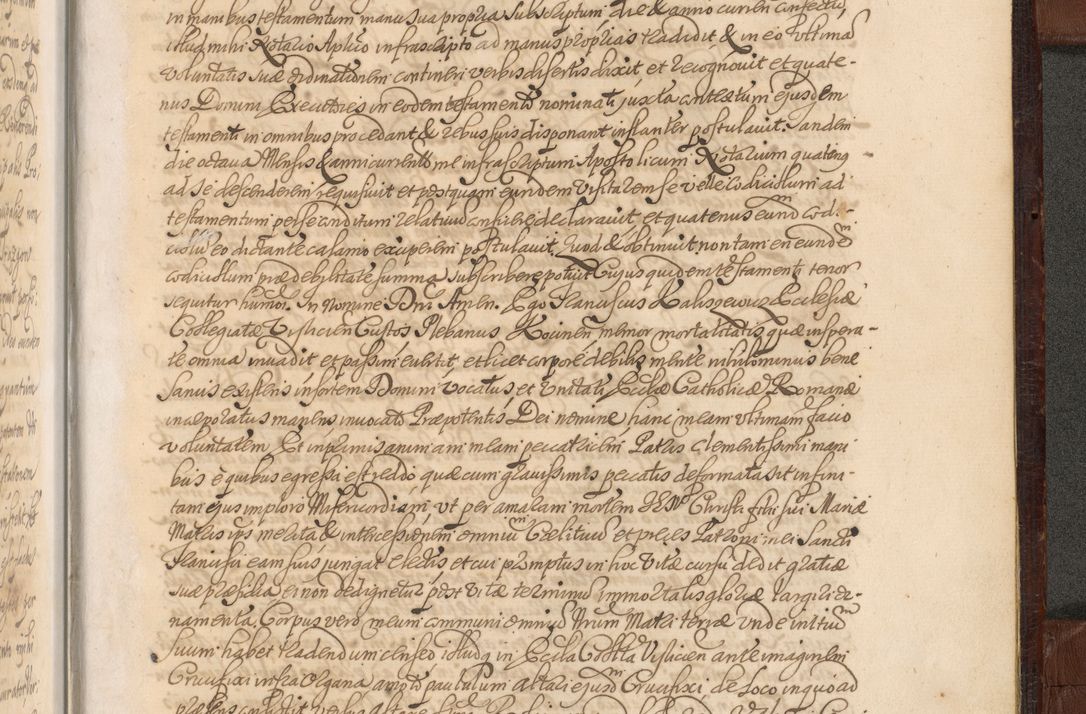 in manibus testamentum manu sua propria subscriptum die & anno curren confectu
illud mihi Notario Aplico infrascripto ad manus proprias tradidit & in eo ultima
voluntatis suæ ordinationem contineri verbis disertis dixit et recognovit et quate-
nus Domini Executores in eodem testamento nominati juxta contextum ejusdem
testamenti in omnibus procedant & rebus suis disponant instanter postulavit. Tandem
die octava Mensis & anni currentis me infrascriptum Apostolicum Notarium quateng
ad se descenderem requisivit et postquam eundem visitarem se velle codicillum ad
testamentum per se conditum relativum conficere declaravit, et quatenus eundm codi-
cillu eo dictante calamo exciperem postulavit, Quod & obtinuit non tamen eundem
codicillum præ debilitate summa subscribere potuit Cujus quidem testamenti tenor
sequitur humoi. In Nomine Dni Amen. Ego Franciscus Kaliszewicz Ecclesiæ
Collegiatæ Vislicien Custos Plebanus Kocinen memor mortalitatis quæ inspera-
te omnia invadit et passim evertit, et licet corpore debilis mente nihilominus bene
sanus existens in sortem Domini vocatus, et Unitati Ecclæ Catholicæ Romanæ
incorporatus manens invocato Præpotentis Dei nomine hanc meam ultimam facio
voluntatem. Et inprimis animam meam peccatricem Patris Clementissimi mani
bus e quibus egressa est reddo quæ cum gravissimis peccatis deformata sit infini-
tam ejus imploro Misericordiam, ut per amaram mortem JESU Christi filii sui Mariæ
Matris ips merita & intercessionem omniu Cælituu et preces Patroni mei Sancti
Francisci eam suis jungat electis et cui promptus in hoc vitæ cursu dedit gratiæ
suæ præsidia ei non dedignetur post vitæ terminu immortalis gloriæ largiri or-
namenta. Corpus vero meum communi omniu nrum Matri terræ unde initiu
suum habet tradendum censeo illudq in Eccla Collta Vislicien ante imaginem
Crucifixi infra Organa amoto paululum altari ejusd Crucifixi, de loco in quo ad